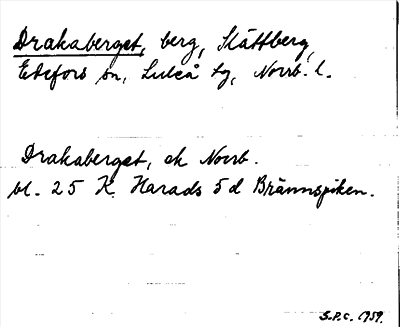 Drakaberget, berg, Slättberg,
Edefors sn, Luleå tg, Norrb. l.
Drakaberget, ek Norrb.
bl. 25 K Harads 5 d Brännspiken.
S.P.C. 1959.